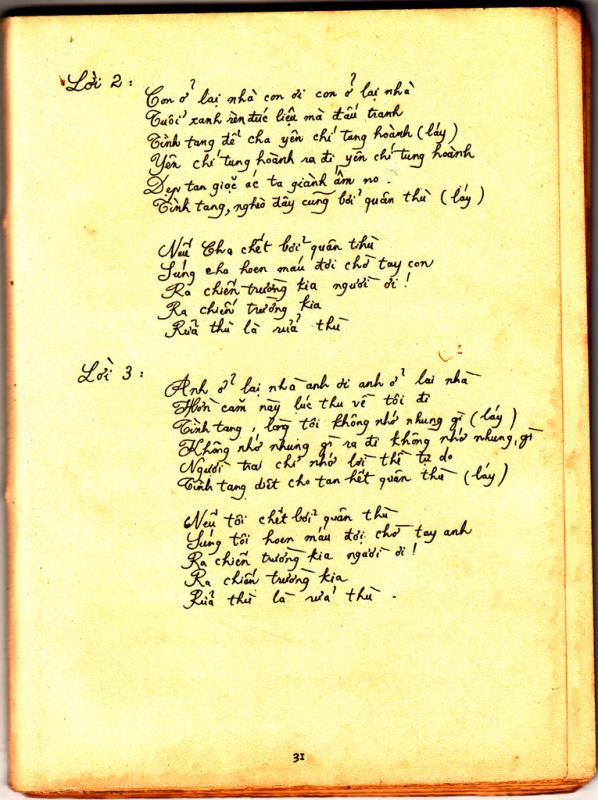 Lời 2 :
Con ở lại nhà con ơi con ở lại nhà
Tuổi xanh rèn đúc liệu mà đấu tranh
Tình tang để cha yên chí tang hoành (láy)
Yên chí tung hoành ra đi yên chí tung hoành
Dẹp tan giặc ác ta giành ấm no .
Tình tang, nghèo đây cũng bởi quân thù (láy)
Nếu Cha chết bởi quân thù
Súng cha hoen máu đợi chờ tay con
Ra chiến trường kia người ơi !
Ra chiến trường kia
Rửa thù là rửa thù
Lời 3 :
Anh ở lại nhà anh ơi anh ở lại nhà
Hờn căm này lúc thu về tôi đi
Tình tang , lòng tôi không nhớ nhung gì (láy)
Không nhớ nhung gì ra đi không nhớ nhung, gì
Người trai chỉ nhớ lời thề tự do
Tình tang diệt cho tan hết quân thù (láy)
Nếu tôi chết bởi quân thù
Súng tôi hoen máu đợi chờ tay anh
Ra chiến trường kia người ơi !
Ra chiến trường kia
Rửa thù là rửa thù .
31